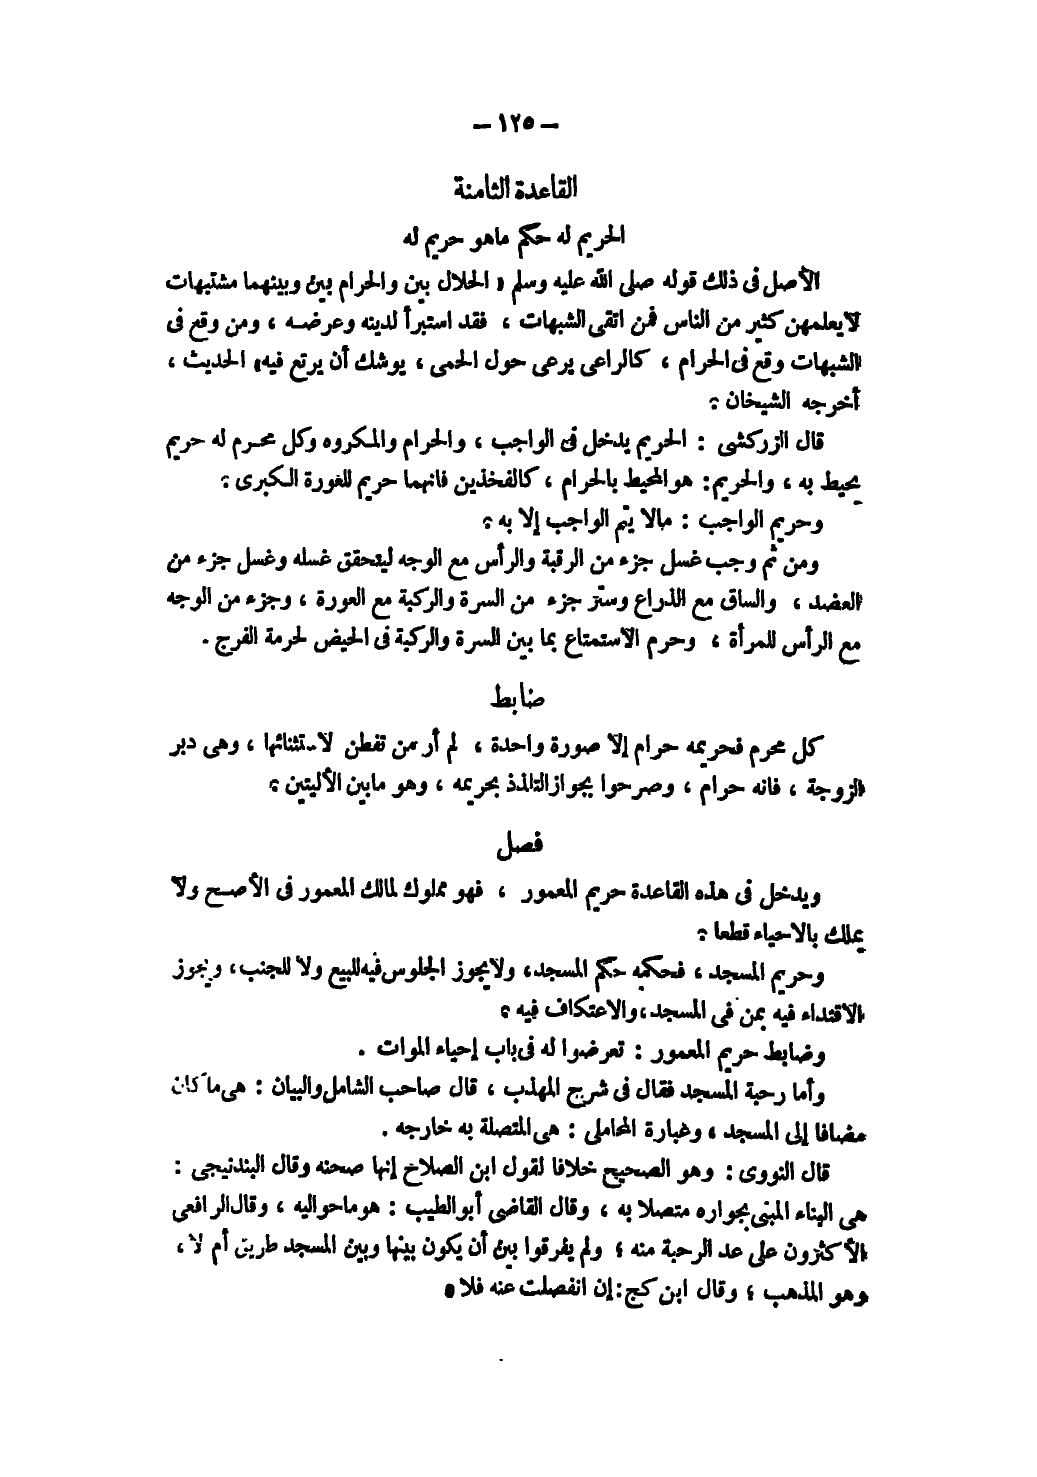 – ١٢٥ –
القاعدة الثامنة
الحريم له حكم ماهو حريم له
الأصل فى ذلك قوله صلى الله عليه وسلم « الحلال بين والحرام بين وبينهما مشتبهات
لايعلمهن كثير من الناس فمن اتقى الشبهات ، فقد استبرأ لدينه وعرضه ، ومن وقع فى
الشبهات وقع فى الحرام ، كالراعى يرعى حول الحمى ، يوشك أن يرتع فيه» الحديث ،
أخرجه الشيخان ؟
قال الزركشى : الحريم يدخل فى الواجب ، والحرام والمكروه وكل محرم له حريم
يحيط به ، والحريم : هو المحيط بالحرام ، كالفخذين فانهما حريم للغورة الكبرى ؟
وحريم الواجب : مالا يتم الواجب إلا به ؟
ومن ثم وجب غسل جزء من الرقبة والرأس مع الوجه ليتحقق غسله وغسل جزء من
العضد ، والساق مع الذراع وستر جزء من السرة والركبة مع العورة ، وجزء من الوجه
مع الرأس للمرأة ، وحرم الاستمتاع بما بين السرة والركبة فى الحيض لحرمة الفرج .
ضابط
كل محرم فحريمه حرام إلا صورة واحدة ، لم أر من تفطن لاستثنائها ، وهى دبر
الزوجة ، فانه حرام ، وصرحوا بجواز التلذذ بحريمه ، وهو مابين الأليتين ؟
فصل
ويدخل فى هذه القاعدة حريم المعمور ، فهو مملوك لمالك المعمور فى الأصح ولا
يملك بالاحياء قطعا ؟
وحريم المسجد ، فحكمه حكم المسجد، ولايجوز الجلوس فيه للبيع ولا للجنب، ويجوز
الاقتداء فيه بمن فى المسجد، والاعتكاف فيه ؟
وضابط حريم المعمور : تعرضوا له فى باب إحياء الموات .
وأما رحبة المسجد فقال فى شرح المهذب ، قال صاحب الشامل والبيان : هى ما كان
مضافا إلى المسجد ، وغبارة المحاملى : هى المتصلة به خارجه .
قال النووى : وهو الصحيح خلافا لقول ابن الصلاح إنها صحنه وقال البندنيجى :
هى البناء المبنى بجواره متصلا به ، وقال القاضى أبو الطيب : هو ماحواليه ، وقال الرافعى
الأكثرون على عد الرحبة منه ؛ ولم يفرقوا بين أن يكون بينها وبين المسجد طريق أم لا ،
وهو المذهب ؛ وقال ابن كج : إن انفصلت عنه فلا ،